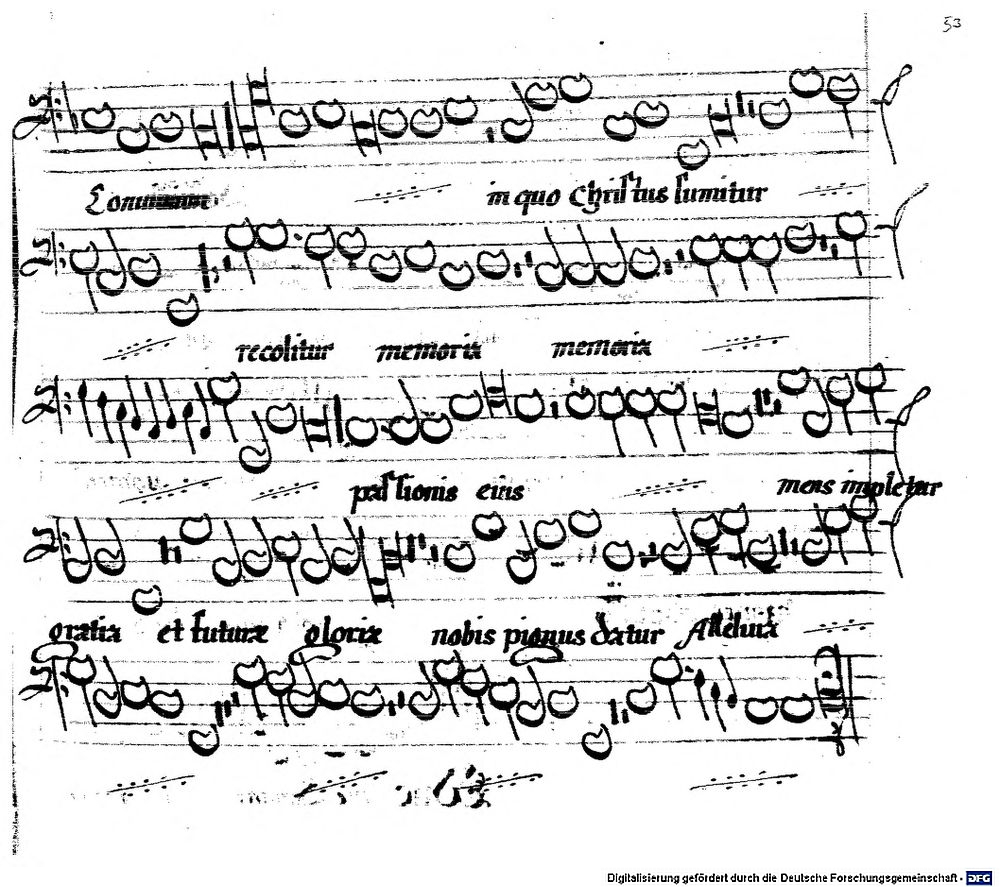 53
in quo Christus sumitur
recolitur memoria memoria
passionis eius mens impletur
gratia et futuræ gloriæ nobis pignus datur Alleluia
Digitalisierung gefördert durch die Deutsche Forschungsgemeinschaft - DFG